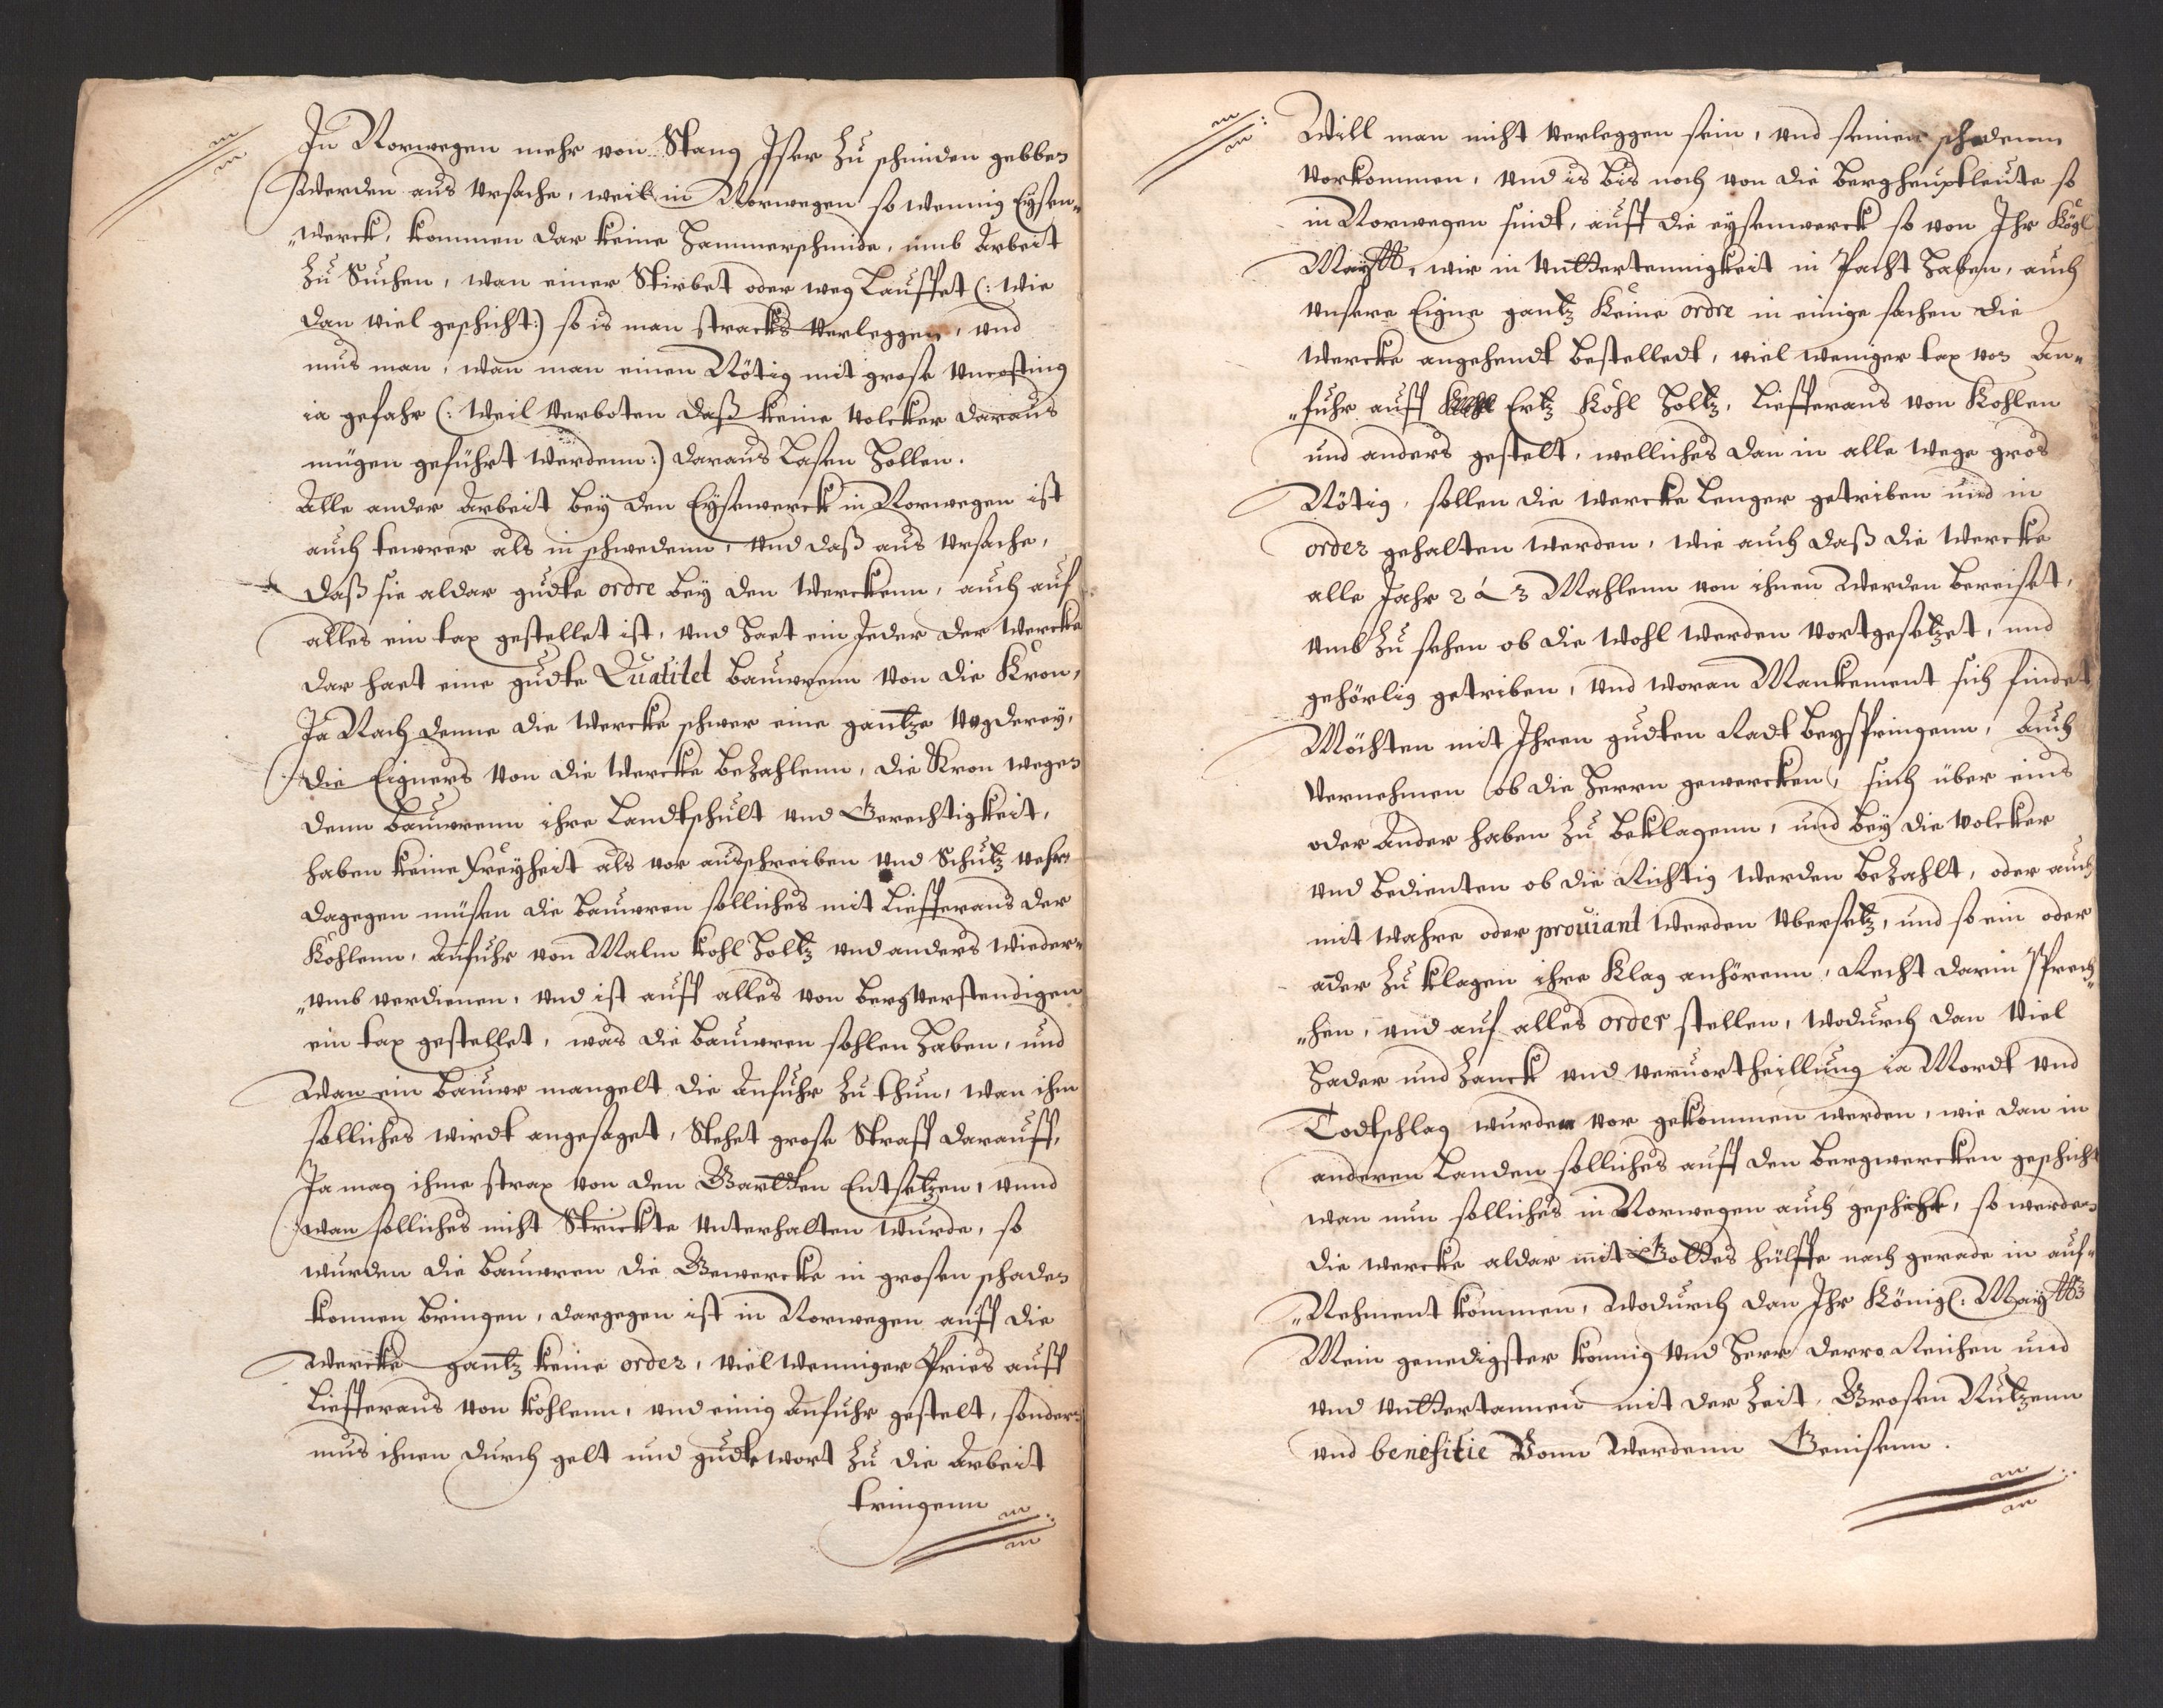 In Norwegen mehr von Stang Iser zu schmiden gebben
werden aus ursache, weil in Norwegen so wennig Eysen„
„werck, kommen dar keine Hammerschmide, umb Arbeit
zu Suchen, wan einer Stirbet oder weg Lauffet (: wie
dan viel geschicht:) so is man stracks verleggen, und
mus man, wan man einen Nötig mit grose uncosting
ia gefahr (: weil verboten daß keine volcker daraus
mügen geführt werdenn:) daraus Lasen Hollen.
Alle ander Arbeit bey den Eysewerck in Norwegen ist
auch tewrer als in schwedenn, und daß aus ursache,
daß sie aldar gudte ordre bey den werckenn, auch auf
alles ein tax gestellet ist, und Haet ein Jeder der wercke
dar haet eine gudte Quatitet bauwrenn von die Kron,
Ja Nach denne die wercke schwer eine gantze vogderey,
die Eigners von die wercke bezahlenn, die Kron wegen
denn bauwrenn ihre Landtschult und Gerechtigkeit,
haben keine freyheit als vor ausschreiben und Schutz
dagegen müsen die bauwren solliches mit Liefferans der
Kohlenn, Anfuhr von Malm kohl Holtz und anders wieder„
„umb verdienen, und ist auff alles von bergverstendigen
ein tax gestellet, was die bauwren sohlen Haben, und
wan ein bauwr mangelt die Anfuhr zu thun, wan ihm
solliches wirdt angesaget, Stehet grose Straff darauff,
Ja mag ihme strax von den Entsetzen, unnd
wan solliches nicht Strickte unterhalten wurde, so
wurden die bauwren die Gewercke in grosen schaden
konnen bringen, dargegen ist in Norwegen auff die
wercke gantz keine order, viel wenniger Pries auff
Liefferans von kohlenn, und einig Anfuhr gestelt, sonder
mus ihnen durch gelt und gudte wort zu die Arbeit
bringenn
Will man nicht verleggen sein, und seinen schadenn
vorkommen, und is bis noch von die bergheuptleute so
in Norwegen sindt, auff die eysenwerck so von Ihr Kögl
Maytt, wir in unttertennigkeit in Pacht Haben, auch
unsere Eigne gantz keine ordre in einige sachen die
wercke angehendt bestelledt, viel weniger tax von An„
„fuhr auff Ertz Kohl Holtz, Liefferans von Kohlen
und anders gestelt, welliches dan in alle wege gros
Nötig, sollen die wercke Lenger getriben und in
order gehalten werden, wie auch daß die wercke
alle Jahr 2 á 3 Mahlenn von ihnen werden bereiset,
umb zu sehen ob die wohl werden vortgesetzet, und
gehörlig getriben, und woran Mankement sich findet
Möchten mit Ihren gudten Radt beyspringenn, Auch
vernehmen ob die Herrn gewercken, sich über eins
oder Ander haben zu beklagenn, und bey die volcker
und bedienten ob die Richtig werden bezahlt, oder auch
mit wahre oder proviant werden übersetz, und so ein oder
ader zu klagen ihre Klag anhörenn, Recht darin sprech„
„hen, und auf alles order stellen, wodurch dan viel
Hader und zanck und vervortheillung ia Mordt und
Todtschlag wurden vor gekommen werden, wie dan in
anderen Landen solliches auff den bergwercken geschicht
wan nun solliches in Norwegen auch geschicht, so werden
die wercke aldar mit Gottes hülffe nach gerade in auf„
„Nehment kommen, wodurch dan Ihr Königl: Maytt
Mein genedigster konnig und Herr derro Reichen und
und unttertannen mit der zeit, Grosen Nutzenn
und benefitie Vonn werdenn Genisenn.